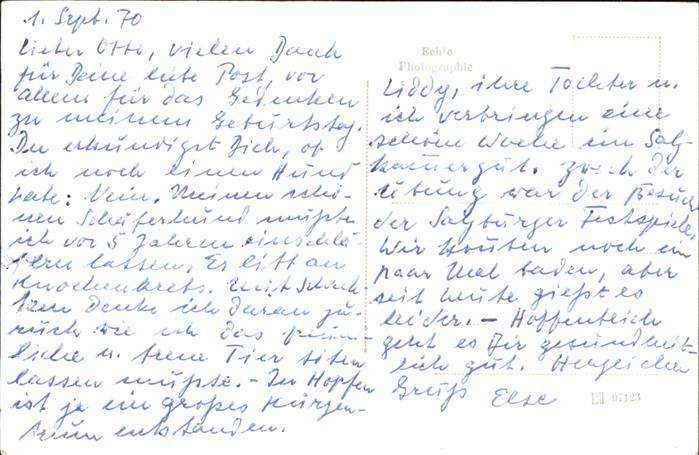 1. Sept. 70
Lieber Otto, vielen Dank
für Deine liebe Post, vor
allem für das Gedenken
zu meinem Geburtstag.
Du erkundigst Dich, ob
ich noch einen Hund
habe: Nein. Meinen schö-
nen Schäferhund mußte
ich vor 5 Jahren einschlä-
fern lassen. Es litt an
Knochenkrebs. Mit Schreck-
ken denke ich daran zu-
rück wie ich das freund-
liche u. treue Tier töten
lassen mußte. - In Hopfen
ist ja ein großes Kurzen-
trum entstanden.
Echte
Photographie
Liddy, ihre Tochter u.
ich verbringen eine
schöne Woche im Salz-
kammergut. Zweck der
Übung war der Besuch
der Salzburger Festspiele.
Wir konnten noch ein
paar Mal baden, aber
seit heute gießt es
leider. - Hoffentlich
geht es Dir gesundheit-
lich gut. Herzlichen
Gruß Else
07123